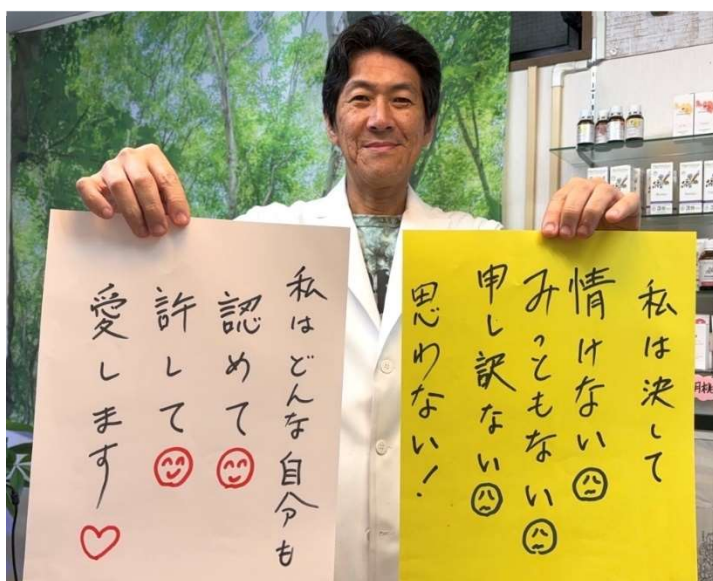 私は決して
情けない
みっともない
申し訳ない
思わない！
私はどんな自分も
認めて
許して
愛します